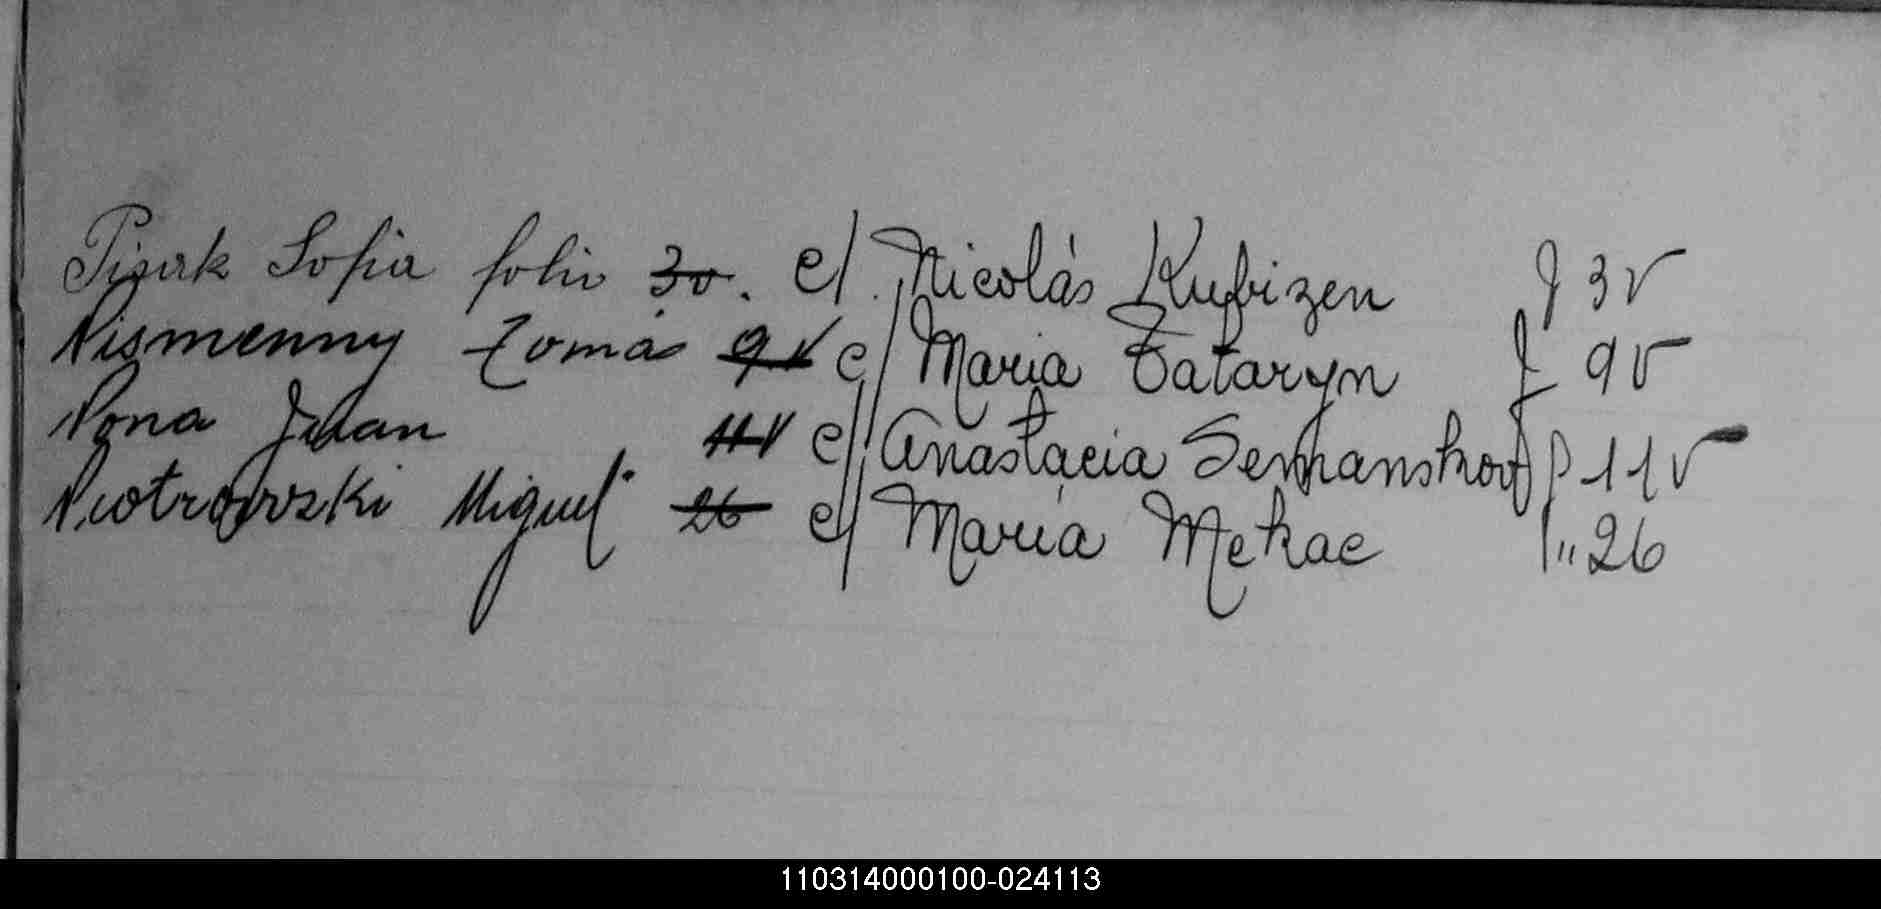 Pisark Sofia folio 3v. c/. Nicolás Kubizen f 3v
Pismenny Tomás 9v c/ Maria Tataryn f 9v
Pona Juan 11v c/ Anastacia Semanskof f 11v
Piotrowski Miguel 26 c/ María Mekac f" 26
110314000100-024113